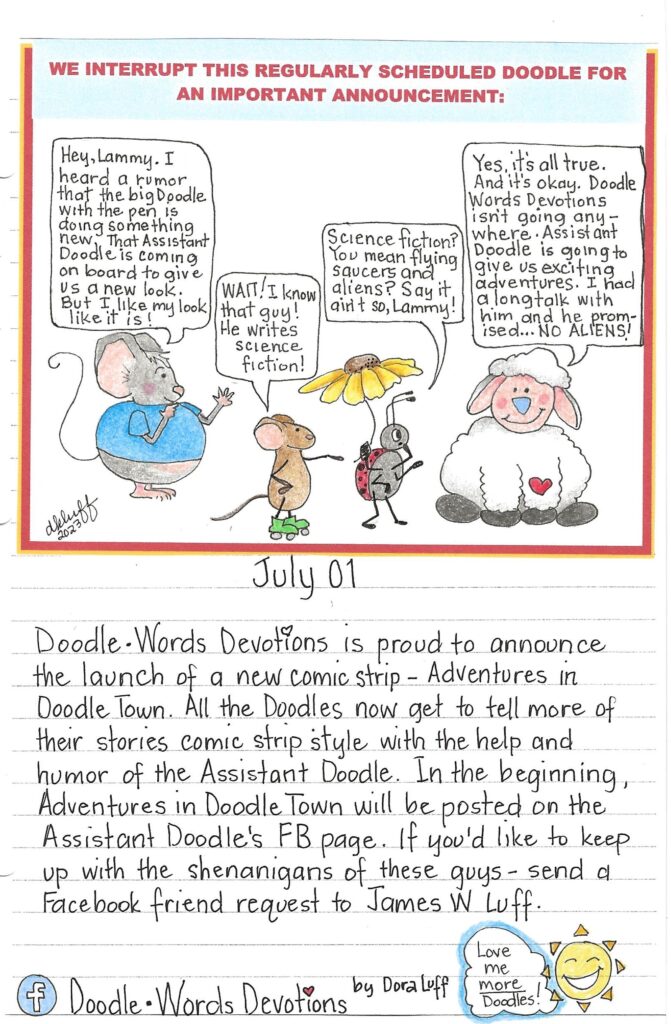 WE INTERRUPT THIS REGULARLY SCHEDULED DOODLE FOR
AN IMPORTANT ANNOUNCEMENT:
Hey, Lammy. I
heard a rumor
that the big Doodle
with the pen is
doing something
new. That Assistant
Doodle is coming
on board to give
us a new look.
But I like my look
like it is!
WAIT! I know
that guy!
He writes
science
fiction!
Science fiction?
You mean flying
saucers and
aliens? Say it
ain't so, Lammy!
Yes, it's all true.
And it's okay. Doodle
Words Devotions
isn't going any-
where. Assistant
Doodle is going to
give us exciting
adventures. I had
a long talk with
him and he prom-
ised... NO ALIENS!
dkluff
2023
July 01
Doodle•Words Devotions is proud to announce
the launch of a new comic strip - Adventures in
Doodle Town. All the Doodles now get to tell more of
their stories comic strip style with the help and
humor of the Assistant Doodle. In the beginning,
Adventures in Doodle Town will be posted on the
Assistant Doodle's FB page. If you'd like to keep
up with the shenanigans of these guys - send a
Facebook friend request to James W Luff.
Love
me
more
Doodles!
f Doodle•Words Devotions by Dora Luff